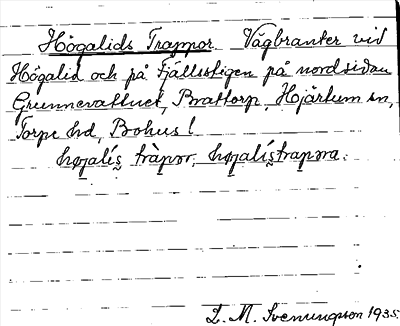 Högalids Trappor. Vägbranter vid
Högalid och på Fjällsstigen på nordsidan
Grunnevattnet, Brattorp, Hjärtum sn,
Torpe hd, Bohus l.
høgalís tràpor, høgalístrapora.
L. M. Svenungsson 1935.